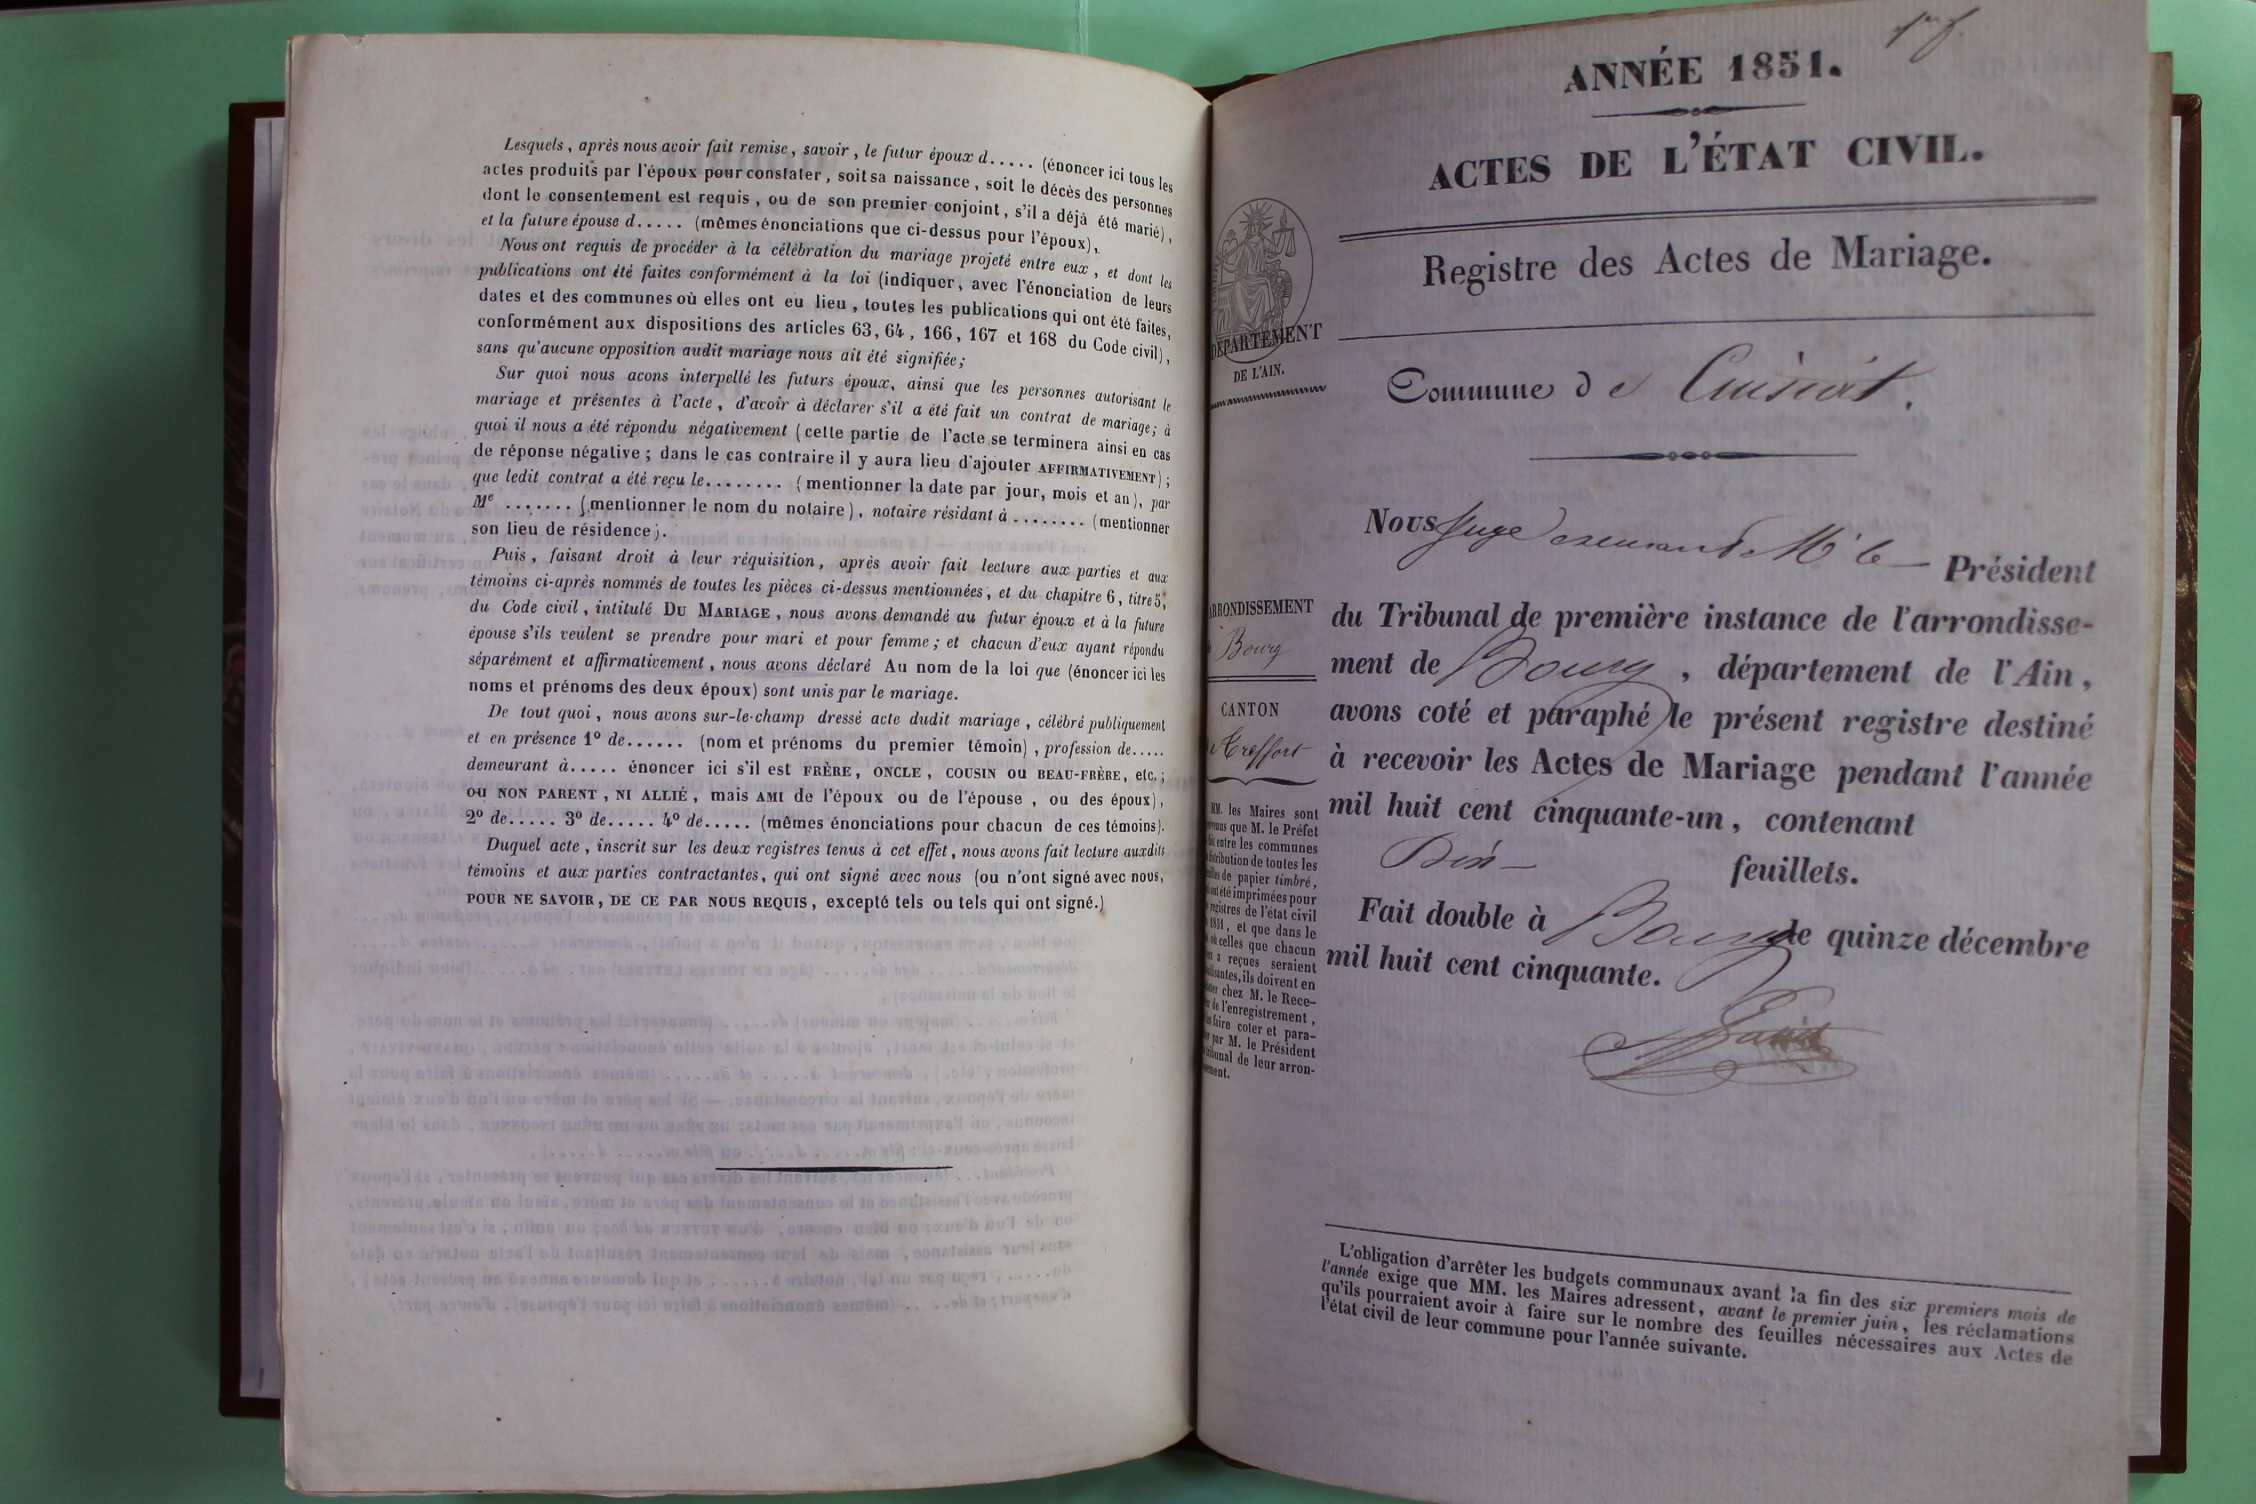 Lesquels, après nous avoir fait remise, savoir, le futur époux d..... (énoncer ici tous les
actes produits par l'époux pour constater, soit sa naissance, soit le décès des personnes
dont le consentement est requis, ou de son premier conjoint, s'il a déjà été marié),
et la future épouse d..... (mêmes énonciations que ci-dessus pour l'époux),
Nous ont requis de procéder à la célébration du mariage projeté entre eux, et dont les
publications ont été faites conformément à la loi (indiquer, avec l'énonciation de leurs
dates et des communes où elles ont eu lieu, toutes les publications qui ont été faites,
conformément aux dispositions des articles 63, 64, 166, 167 et 168 du Code civil),
sans qu'aucune opposition audit mariage nous ait été signifiée;
Sur quoi nous acons interpellé les futurs époux, ainsi que les personnes autorisant le
mariage et présentes à l'acte, d'avoir à déclarer s'il a été fait un contrat de mariage; à
quoi il nous a été répondu négativement (cette partie de l'acte se terminera ainsi en cas
de réponse négative; dans le cas contraire il y aura lieu d'ajouter AFFIRMATIVEMENT);
que ledit contrat a été reçu le........ (mentionner la date par jour, mois et an), par
Me ....... (mentionner le nom du notaire), notaire résidant à ........ (mentionner
son lieu de résidence).
Puis, faisant droit à leur réquisition, après avoir fait lecture aux parties et aux
témoins ci-après nommés de toutes les pièces ci-dessus mentionnées, et du chapitre 6, titre 5,
du Code civil, intitulé DU MARIAGE, nous avons demandé au futur époux et à la future
épouse s'ils veulent se prendre pour mari et pour femme; et chacun d'eux ayant répondu
séparément et affirmativement, nous avons déclaré Au nom de la loi que (énoncer ici les
noms et prénoms des deux époux) sont unis par le mariage.
De tout quoi, nous avons sur-le-champ dressé acte dudit mariage, célébré publiquement
et en présence 1o de...... (nom et prénoms du premier témoin), profession de.....
demeurant à..... énoncer ici s'il est FRÈRE, ONCLE, COUSIN ou BEAU-FRÈRE, etc.;
OU NON PARENT, NI ALLIÉ, mais AMI de l'époux ou de l'épouse, ou des époux),
2o de..... 3o de..... 4o de..... (mêmes énonciations pour chacun de ces témoins).
Duquel acte, inscrit sur les deux registres tenus à cet effet, nous avons fait lecture auxdits
témoins et aux parties contractantes, qui ont signé avec nous (ou n'ont signé avec nous,
POUR NE SAVOIR, DE CE PAR NOUS REQUIS, excepté tels ou tels qui ont signé.)
ANNÉE 1851.
ACTES DE L'ÉTAT CIVIL.
Registre des Actes de Mariage.
DÉPARTEMENT
DE L'AIN.
Commune de Cuisiat.
ARRONDISSEMENT
Bourg
CANTON
Treffort
MM. les Maires sont
que M. le Préfet
fait entre les communes
distribution de toutes les
de papier timbré,
ont été imprimées pour
registres de l'état civil
1851, et que dans le
où celles que chacun
a reçues seraient
ils doivent en
chez M. le Rece-
de l'enregistrement,
faire coter et para-
par M. le Président
tribunal de leur arron-
Nous Juge exerçant Mr le Président
du Tribunal de première instance de l'arrondisse-
ment de Bourg, département de l'Ain,
avons coté et paraphé le présent registre destiné
à recevoir les Actes de Mariage pendant l'année
mil huit cent cinquante-un, contenant
feuillets.
Fait double à Bourg le quinze décembre
mil huit cent cinquante.
L'obligation d'arrêter les budgets communaux avant la fin des six premiers mois de
l'année exige que MM. les Maires adressent, avant le premier juin, les réclamations
qu'ils pourraient avoir à faire sur le nombre des feuilles nécessaires aux Actes de
l'état civil de leur commune pour l'année suivante.